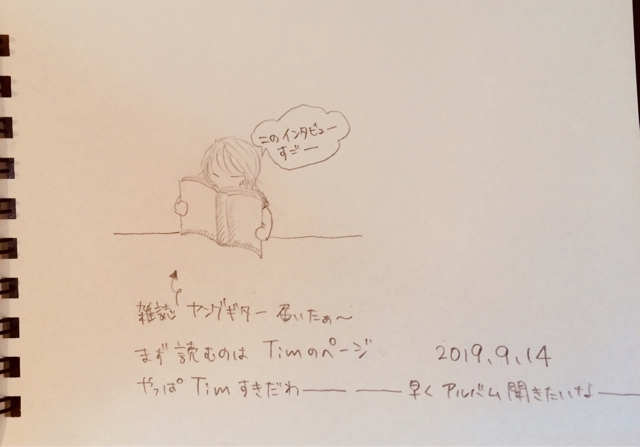 このインタビュー
すごー
雑誌 ヤングギター 届いたぁ〜
まず 読むのは Timのページ
2019.9.14
やっぱ Tim すきだわ―― ――早く アルバム 聞きたいな――